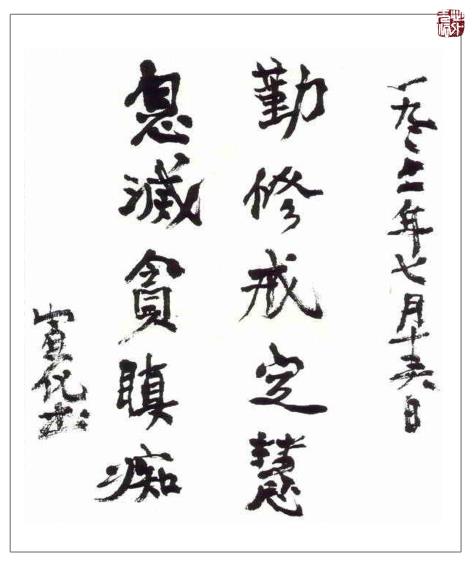 一九八二年七月十六日
勤修戒定慧
息滅貪瞋痴
宣化书